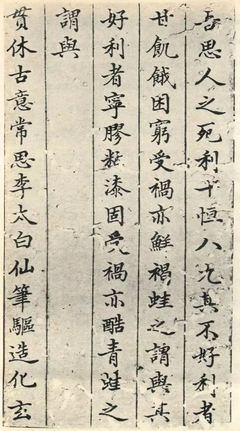 吾思人之死利十恒八九其不好利者
甘飢餓困窮受禍亦鮮禍蛙之謂與其
好利者寧膠粘漆固受禍亦酷青蛙之
謂與
貫休古意常思李太白仙筆驅造化玄